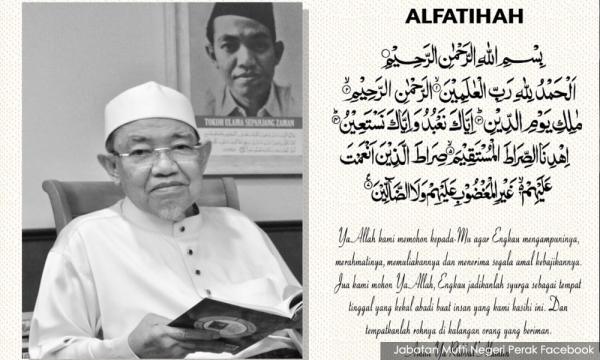 TOKOH ULAMA SEPANJANG ZAMAN
ALFATIHAH
بِسْمِ اللَّهِ الرَّحْمَٰنِ الرَّحِيمِ
اَلْحَمْدُ لِلَّهِ رَبِّ الْعَٰلَمِينَ الرَّحْمَٰنِ الرَّحِيمِ
مَٰلِكِ يَوْمِ الدِّينِ إِيَّاكَ نَعْبُدُ وَإِيَّاكَ نَسْتَعِينُ
اِهْدِنَا الصِّرَاطَ الْمُسْتَقِيمَ صِرَاطَ الَّذِينَ أَنْعَمْتَ
عَلَيْهِمْ غَيْرِ الْمَغْضُوبِ عَلَيْهِمْ وَلَا الضَّالِّينَ
Ya Allah kami memohon kepada-Mu agar Engkau mengampuninya,
merahmatinya, memuliakannya dan menerima segala amal kebajikannya.
Jua kami mohon Ya Allah, Engkau jadikanlah syurga sebagai tempat
tinggal yang kekal abadi buat insan yang kami kasihi ini. Dan
tempatkanlah rohnya di kalangan orang yang beriman.
Jabatan Mufti Negeri Perak Facebook